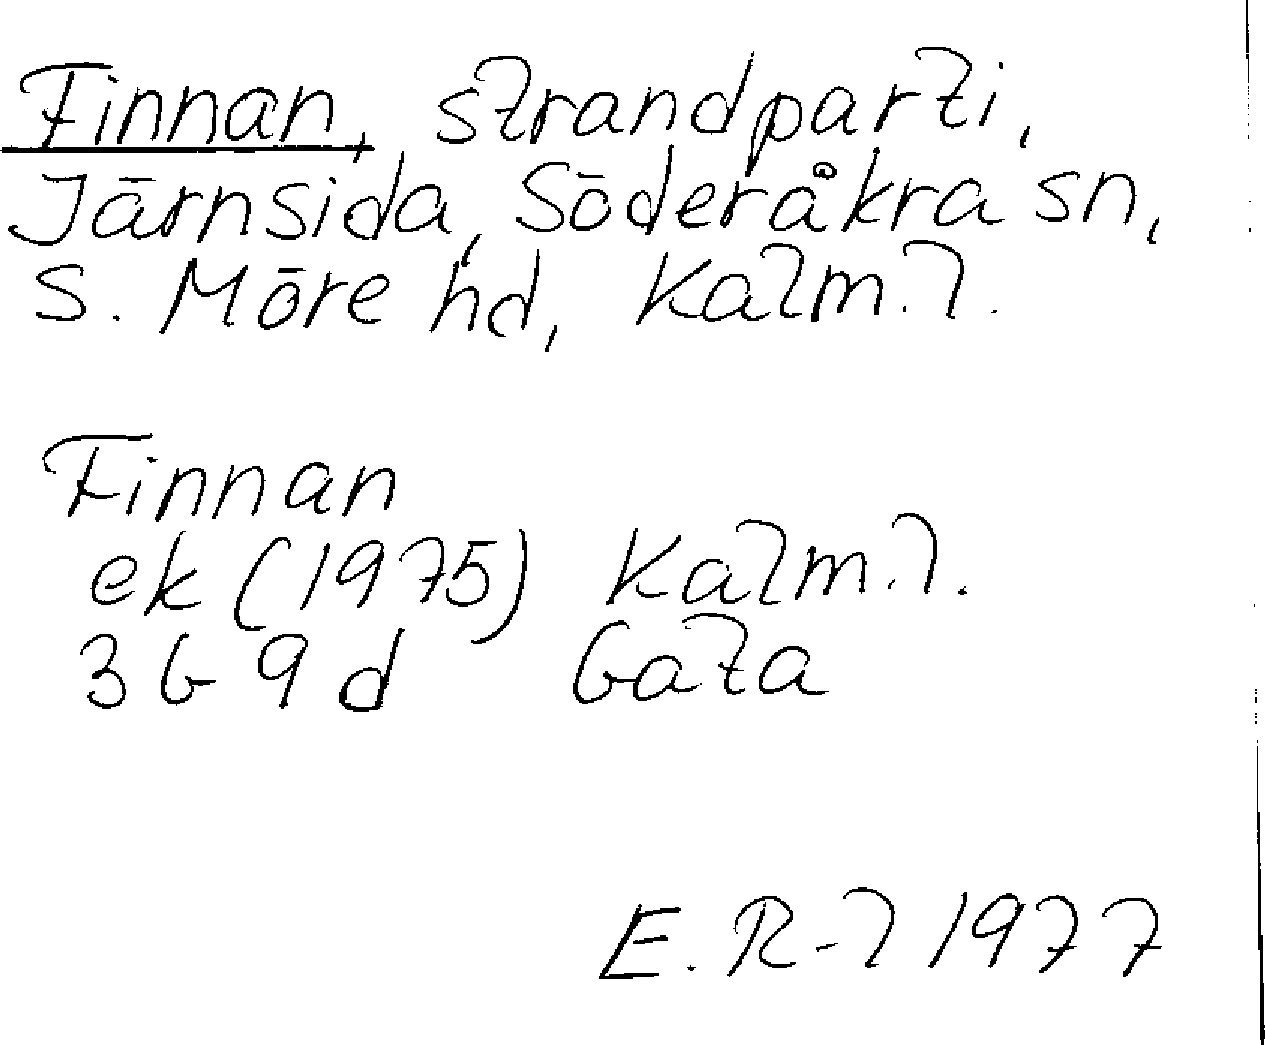 Finnan, strandparti,
Järnsida, Söderåkra sn,
S. Möre hd, Kalm. l.
Finnan
ek (1975) Kalm. l.
3 G 9 d Gata
E. R-l 1977